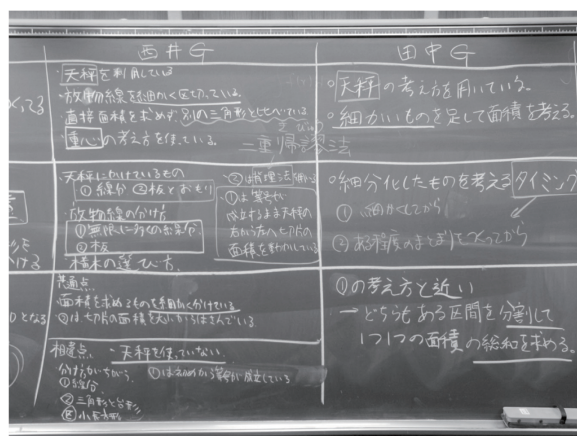 西井G
・天秤を利用している
・放物線を細かく区切っている。
・直接面積を求めず、別の三角形と比べている
・重心の考え方を使っている。
二重帰謬法
・天秤にかけているもの
①線分 ②板とおもり
・放物線の分け方
①無限に多くの線分
②板
・積木の選び方
②は背理法を用いる
・①は等号が
成立するまま天秤の
右から左へ切片の
面積を動かしている
共通点
・面積を求めるものを細かく分けている
・②は切片の面積を大小からはさんでいる
相違点 ・天秤を使っていない
分け方がちがう
①線分
②三角形と台形
区小長方形
①は初めから等号が成立している
田中G
・天秤の考え方を用いている。
・細かいものを足して面積を考える。
・細分化したものを考えるタイミング
① 細かくしてから
② ある程度のまとまりをつくってから
①の考え方と近い
→どちらもある区間を分割して
1つ1つの面積の総和を求める。